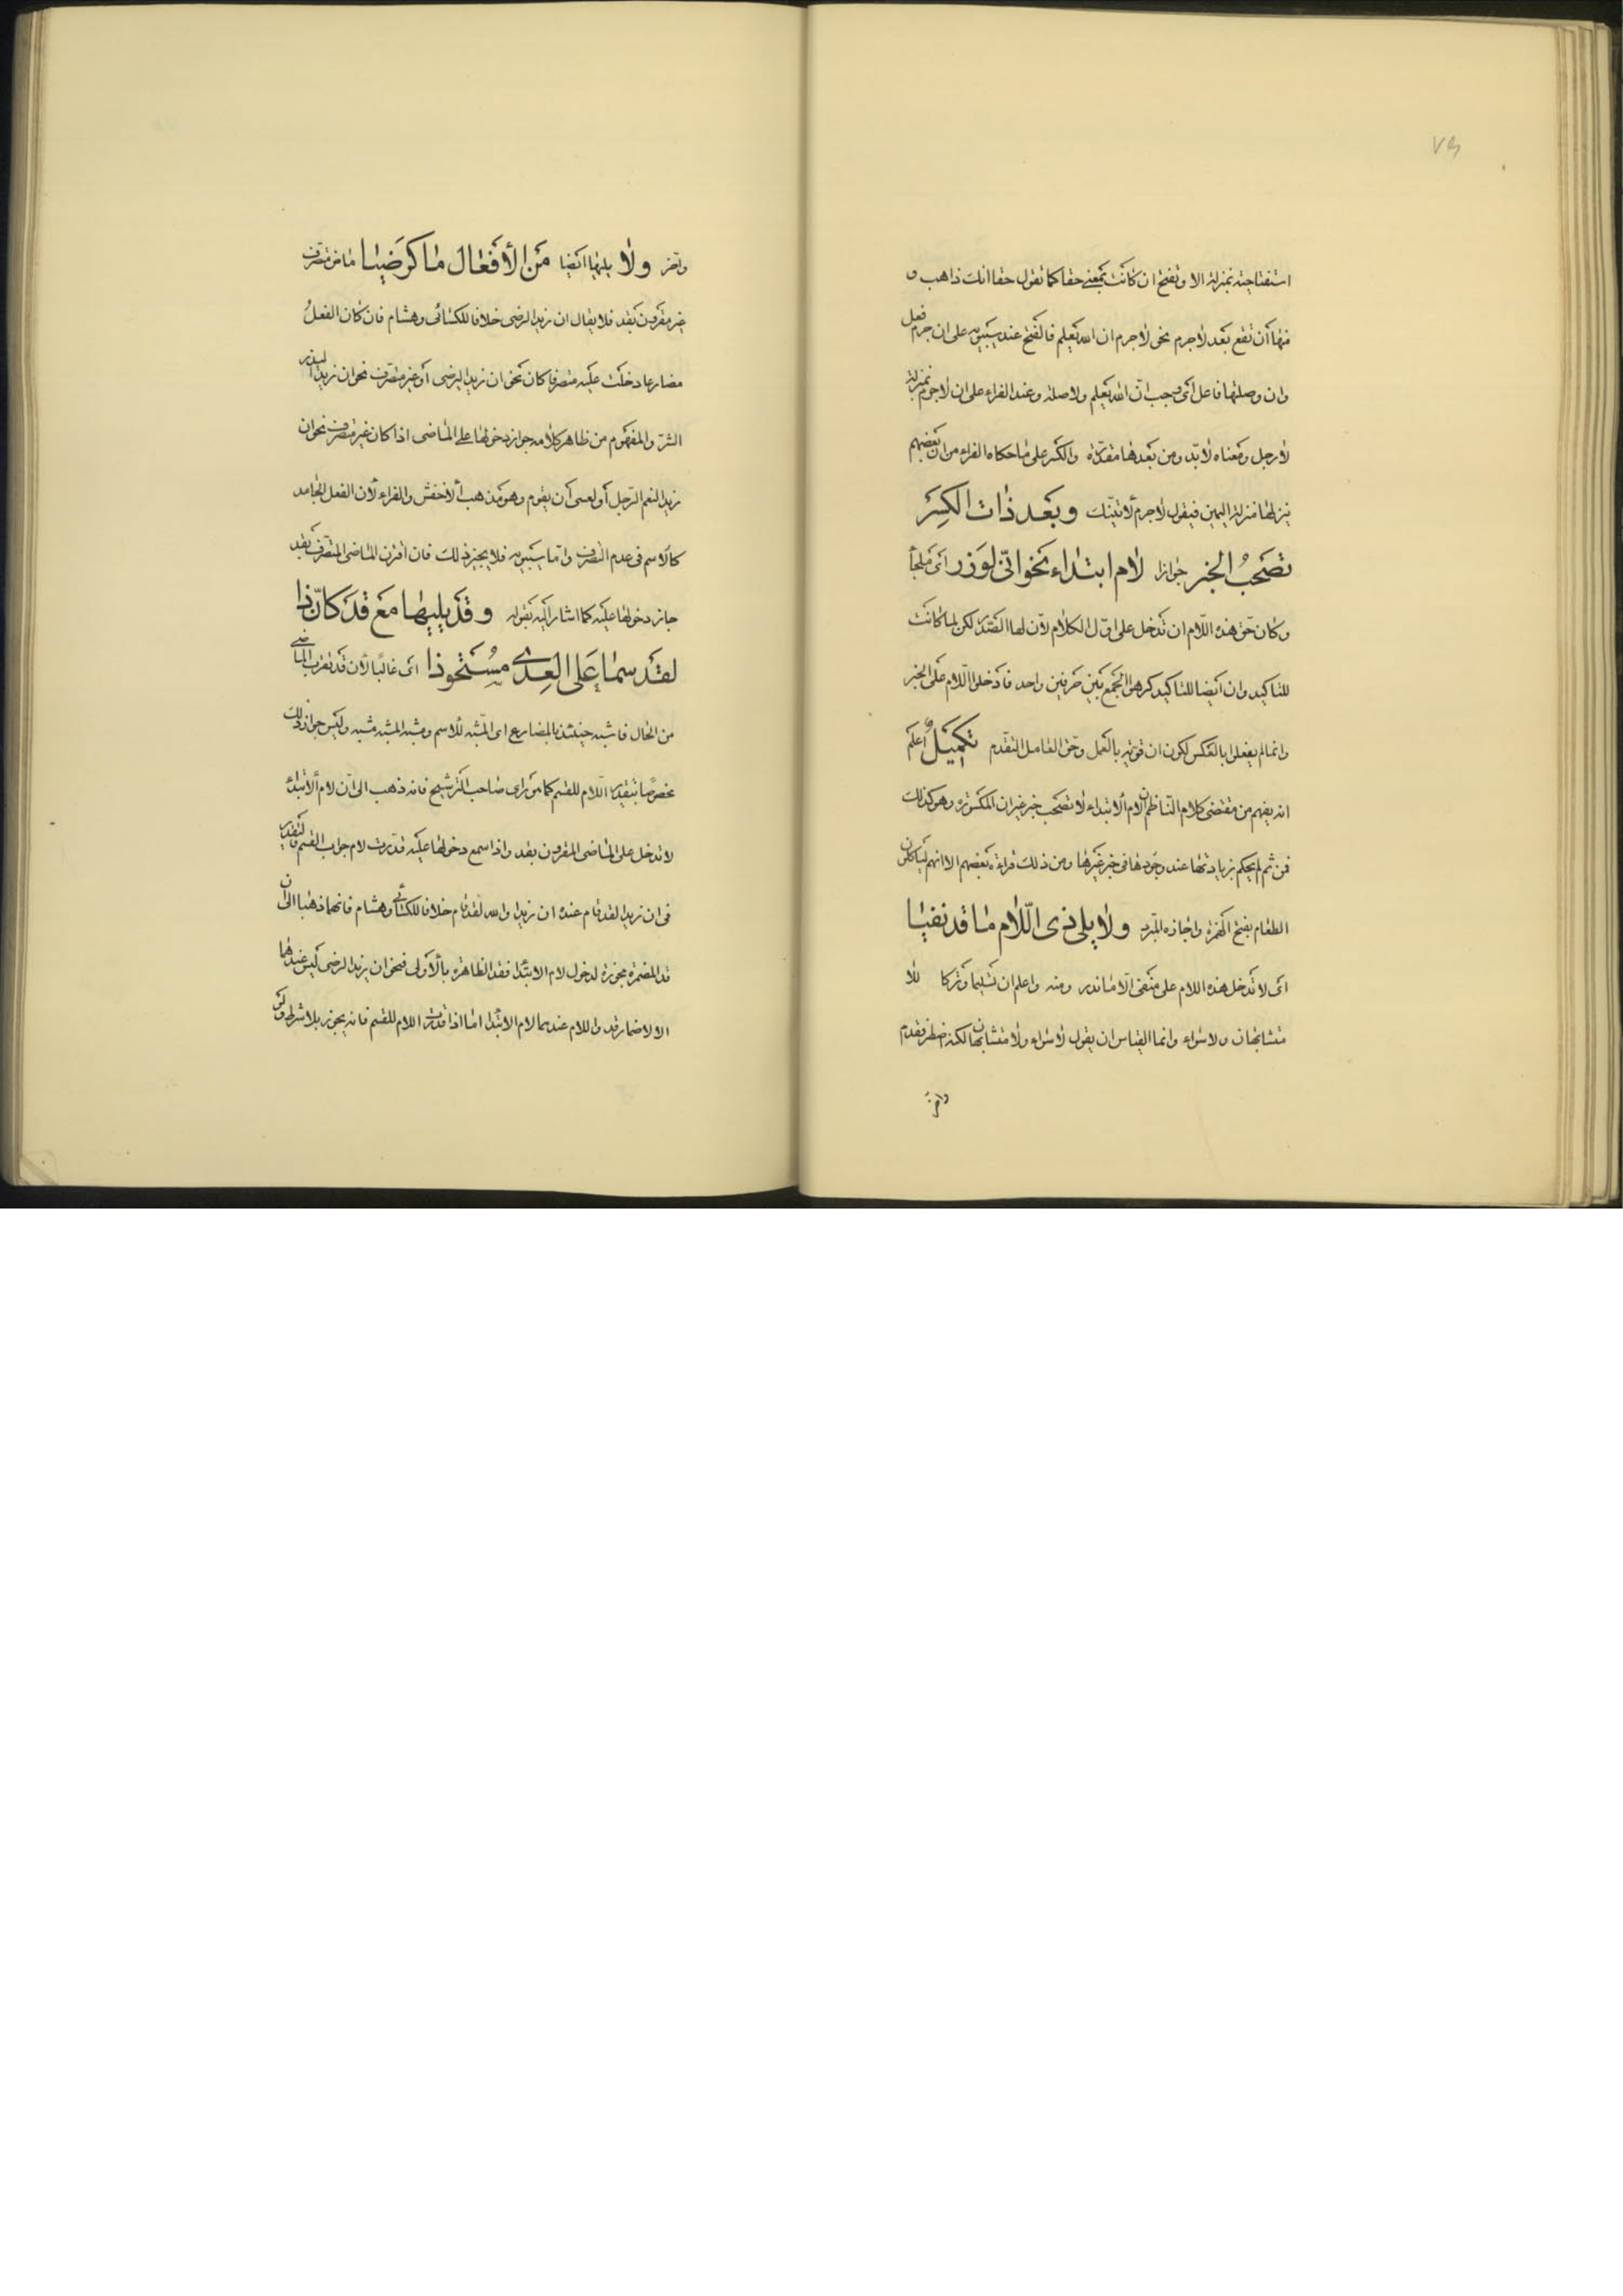 ٧٩
استفتاحية بمنزلة الا وتفتح ان كانت بمعنى حقا كما تقول حقا انك ذاهب و
منها أن تقع بعد لا جرم نحو لا جرم ان الله يعلم فالفتح عند سيبويه على ان جرم فعل
وان وصلتها فاعل أي وجب أن الله يعلم ولا صلة وعند الفراء على ان لا جرم بمنزلة
لا رجل ومعناه لا بد ومن بعدها مقدرة والكسر على ما حكاه الفراء من ان بعضهم
ينزلها منزلة اليمين فيقول لا جرم لآتينك وبعد ذات الكسر
تصحب الخبر جوازا لام ابتداء نحو اني لوزر أي ملجأ
وكان حق هذه اللام ان تدخل على اول الكلام لأن لها الصدر لكن لما كانت
للتاكيد وان أيضا للتاكيد كرهوا الجمع بين حرفين واحد فأدخلوا اللام على الخبر
وانما لم يفعلوا بالعكس لكون ان قوية بالعمل وحق العامل التقدم تكميل أعلم
انه يفهم من مقتضى كلام الناظم ان لام الابتداء لا تصحب خبر غير ان المكسورة وهو كذلك
فمن ثم لم يحكم بزيادتها عند وجودها في خبر غيرها ومن ذلك قراءة بعضهم الا انهم ليأكلون
الطعام بفتح الهمزة واجازه المبرد ولا يلي ذي اللام ما قد نفيا
أي لا تدخل هذه اللام على منفي الا ما ندر ومنه واعلم ان تسليما وتركا للا
متشابهان ولا سواء وانما القياس ان يقول لا سواء ولا متشابهان لكنه اضطر فقدم
واخر
واخر ولا يليها أيضا من الأفعال ما كرضيا ماض متصرف
غير مقرون بقد فلا يقال ان زيدا لرضى خلافا للكسائي وهشام فان كان الفعل
مضارعا دخلت عليه متصرفا كان نحو ان زيدا ليرضى أو غير متصرف نحو ان زيدا ليذر
الشر والمفهوم من ظاهر كلامه جواز دخولها على الماضي اذا كان غير متصرف نحو ان
زيدا لنعم الرجل أو لعسى أن يقوم وهو مذهب الأخفش والفراء لأن الفعل الجامد
كالاسم في عدم التصرف واما سيبويه فلا يجيز ذلك فان اقترن الماضي المتصرف بقد
جاز دخولها عليه كما اشار اليه بقوله وقد يليها مع قد كان ذا
لقد سما على العدى مستحوذا أي غالبا لأن قد تقرب الماضي
من الحال فاشبه حينئذ المضارع اي المشبه للاسم ومشبه المشبه مشبه وليس جواز ذلك
مخصوصا بتقدير اللام للقسم كما من راى صاحب الترشيح فانه ذهب الى ان لام الابتداء
لا تدخل على الماضي المقرون بقد واذا سمع دخولها عليه قدرت لام جواب القسم والتقدير
في ان زيدا لقد قام عنده ان زيدا والله لقد قام خلافا للكسائي وهشام فانهما ذهبا الى ان
قد المضمرة مجوزة لدخول لام الابتدا فقد الظاهرة بالأولى فنحو ان زيدا لرضى ليس عندهما
الا لاضمار قد واللام عندهما لام الابتدا اما اذا قدرت اللام للقسم فانه يجوز بلا شرط ولو